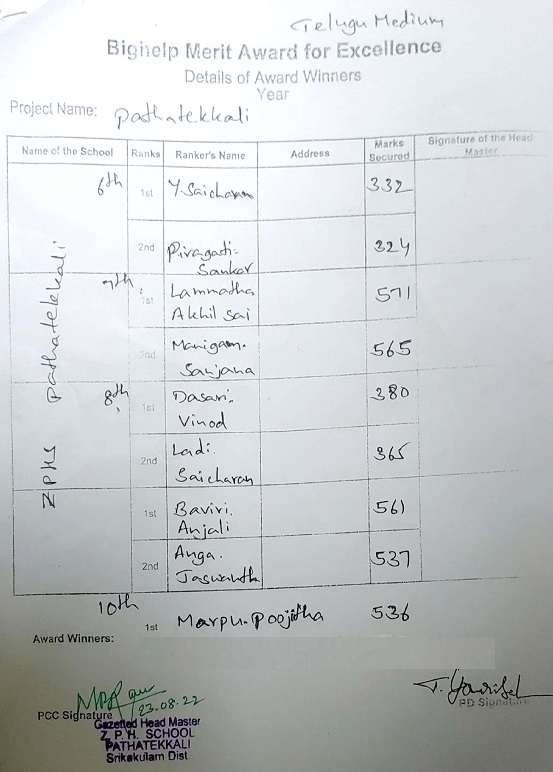 Telugu Medium
Bighelp Merit Award for Excellence
Details of Award Winners
Year
Project Name: Pathatekkali
Name of the School Ranks Ranker's Name Address Marks Secured Signature of the Head Master
ZPHS Pathatekkali
6th 1st Y. Saicharan 332
2nd Piragadi. Sankar 324
7th 1st Lammatha Akhil Sai 571
2nd Manigam. Sanjana 565
8th 1st Dasari. Vinod 380
2nd Ladi. Saicharan 365
1st Baviri. Anjali 561
2nd Anga. Jaswanth 537
10th 1st Marpu. Poojitha 536
Award Winners:
23.08.22
PCC Signature
PD Signature
Gazetted Head Master
Z. P. H. SCHOOL
PATHATEKKALI
Srikakulam Dist